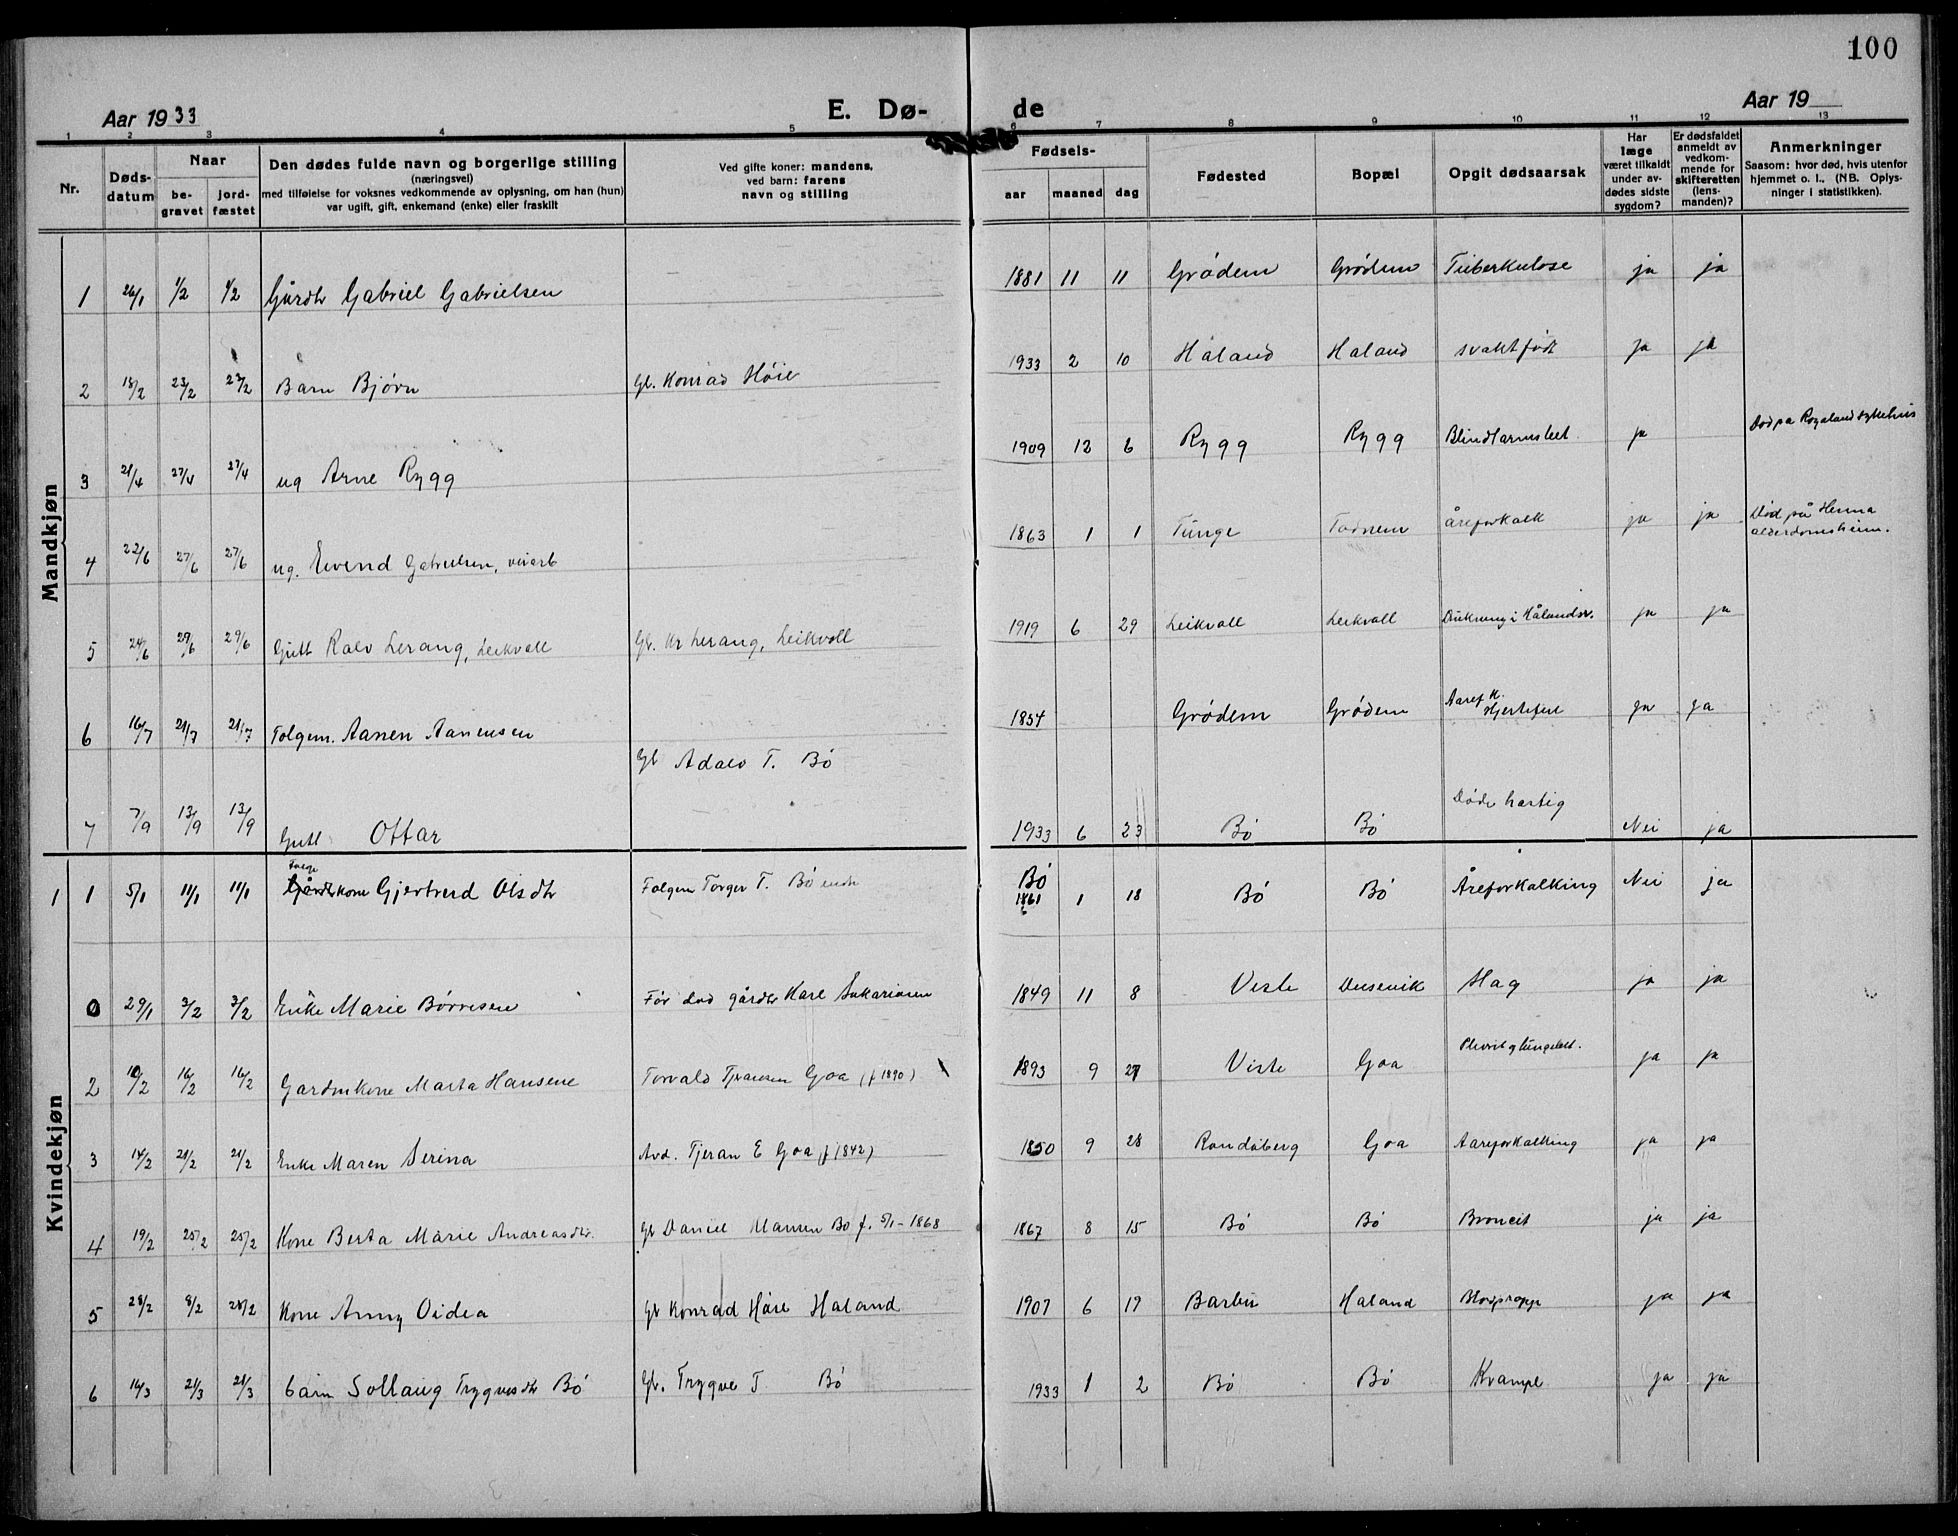 100
Aar 1933 E. Dø- de Aar 19
1 2 3 4 5 6 7 8 9 10 11 12 13
Nr.
Døds-
datum
Naar
be-
gravet
jord-
fæstet
Den dødes fulde navn og borgerlige stilling
(næringsvei)
med tilføielse for voksnes vedkommende av oplysning, om han (hun)
var ugift, gift, enkemand (enke) eller fraskilt
Ved gifte koner: mandens,
ved barn: farens
navn og stilling
Fødsels-
aar maaned dag
Fødested
Bopæl
Opgit dødsaarsak
Har
læge
været tilkaldt
under av-
dødes sidste
sygdom?
Er dødsfaldet
anmeldt av
vedkom-
mende for
skifteretten
(lens-
manden)?
Anmerkninger
Saasom: hvor død, hvis utenfor
hjemmet o. l., (NB. Oplys-
ninger i statistikken).
Mandkjøn
1 26/1 1/2 1/2 Gårdbr Gabriel Gabrielsen 1881 11 11 Grødem Grødem Tuberkulose ja ja
2 18/2 23/2 23/2 Barn Bjørn Gb. Konrad Høie 1933 2 10 Håland Haland svaktfødt ja ja
3 21/4 27/4 27/4 ug Arne Rygg 1909 12 6 Rygg Rygg Blindtarmsbet. ja Død pa Rogaland sykehus
4 22/6 27/6 27/6 ug. Eivend Gabrielsen, veiarb 1863 1 1 Tunge Todnem åreforkalk ja ja Død på Henna
alderdomsheim.
5 24/6 29/6 29/6 Gutt Ralv Lerang, Leikvoll Gb. Kr Lerang, Leikvoll 1919 6 29 Leikvoll Leikvoll Drukning i Hålandsv. ja ja
6 16/7 21/7 21/7 Folgem. Aanen Aanensen 1854 Grødem Grødem Aaref. K. Hjertefeil ja ja
7 7/9 13/9 13/9 Gutt Ottar Gb Adalv T. Bø 1933 6 23 Bø Bø Døde hastig Nei ja
Kvindekjøn
1 1 5/1 11/1 11/1 Folge Gårdbrkone Gjertrud Olsdtr Folgem Torger T. Bø Bø 1861 1 18 Bø Bø Åreforkalking Nei ja
0 29/1 3/2 3/2 Enke Marie Børresen Før død gårdbr Karl Sakariasen 1849 11 8 Viste Dusevik Slag ja ja
2 10/2 16/2 16/2 Gardmkone Marta Hansene Torvald Tjeransen Goa (f 1890) 1893 9 27 Viste Goa Plevrit og lungebet. ja ja
3 14/2 21/2 21/2 Enke Maren Serina Avd. Tjeran E Goa (f 1842) 1850 9 28 Randaberg Goa Aareforkalking ja ja
4 19/2 25/2 25/2 Kone Berta Marie Andreasdtr. Gb Daniel Hansen Bø f. 5/1-1868 1867 8 15 Bø Bø Broncit ja ja
5 28/2 8/2 28/2 Kone Anny Oidea Gb Konrad Høie Haland 1907 6 19 Barbu Haland Blodpropp ja ja
6 16/3 21/3 21/3 barn Sollaug Trygvesdtr Bø Gb. Trygve T. Bø 1933 1 2 Bø Bø Krampe ja ja